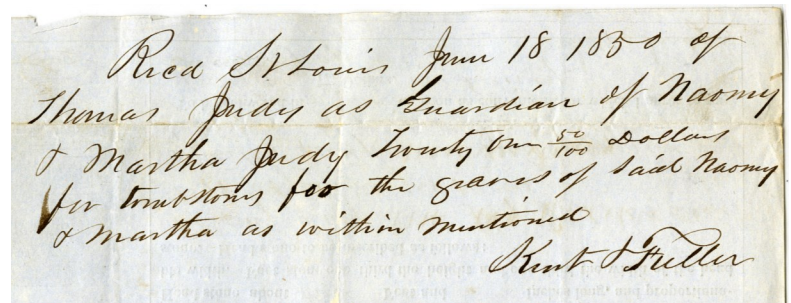 Recd St Louis June 18 1850 of
Thomas Judy as Guardian of Naomy
& Martha Judy Twenty One 50/100 Dollars
for tombstones for the graves of said Naomy
& Martha as within mentioned
Kent & Fuller